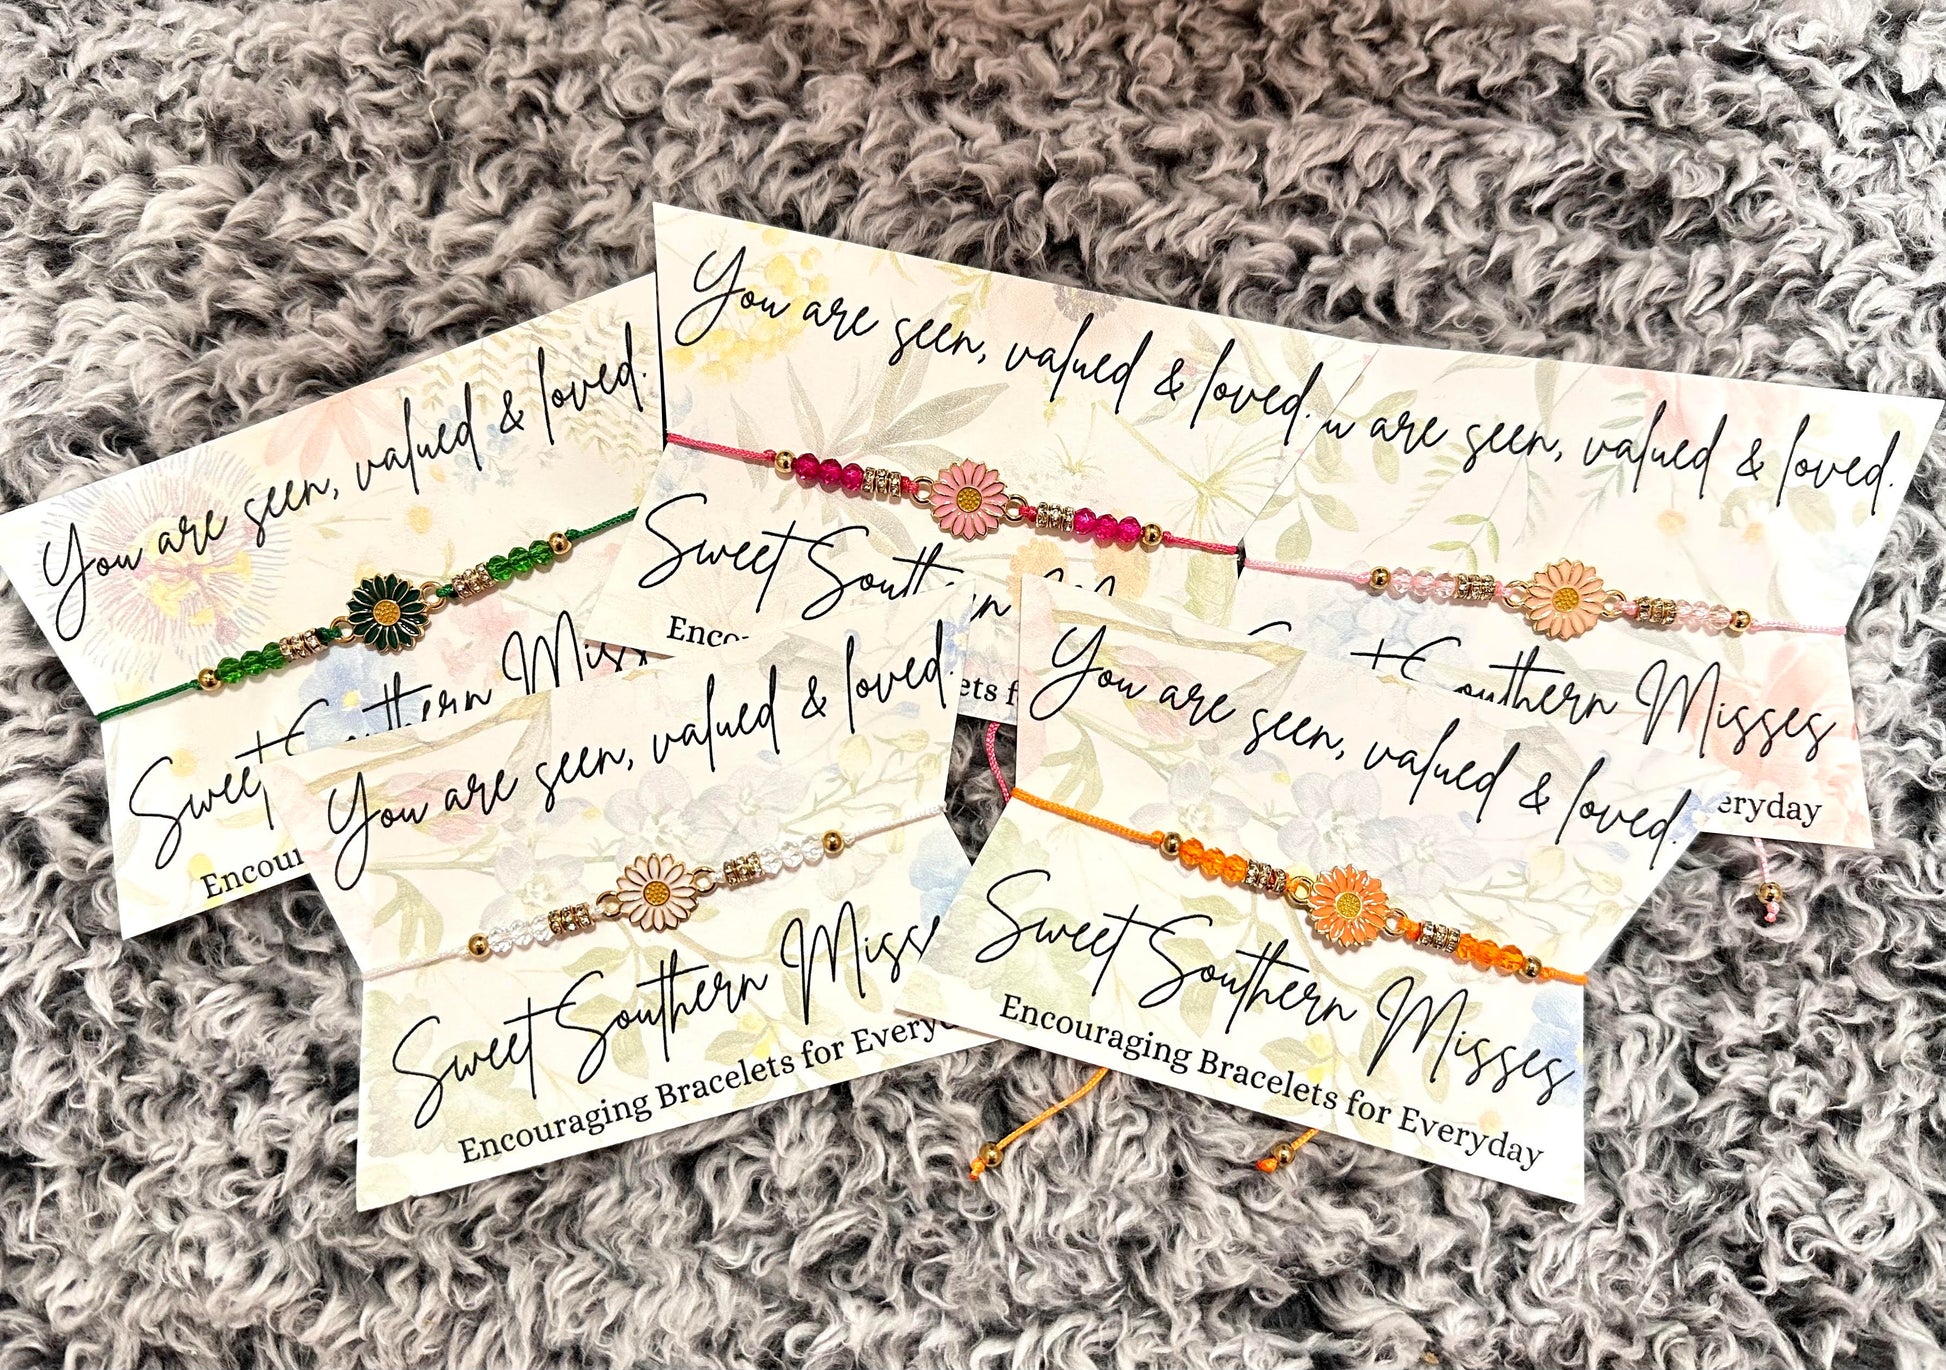 You are seen, valued & loved.
Sweet Southern Miss
Encour
You are seen, valued & loved.
Sweet Southern
Enco
ets f
are seen, valued & loved.
Southern Misses
eryday
You are seen, valued & loved.
Sweet Southern Misse
Encouraging Bracelets for Everyd
You are seen, valued & loved.
Sweet Southern Misses
Encouraging Bracelets for Everyday